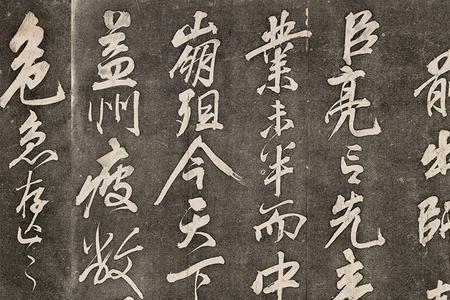 前出師
臣亮言先帝
業未半而中
崩殂今天下
益州疲敝
危急存亡之